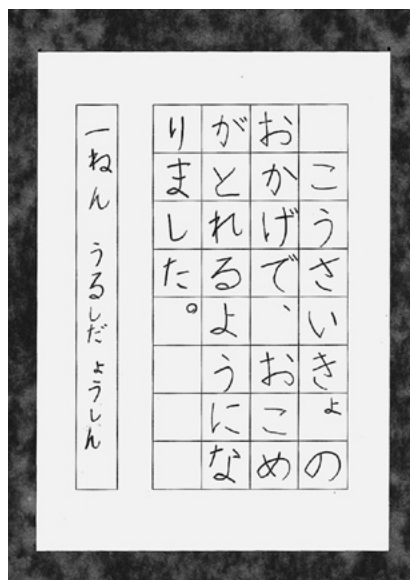 こうさいきょの
おかげで、おこめ
がとれるようにな
りました。
一ねん うるしだ ょうしん